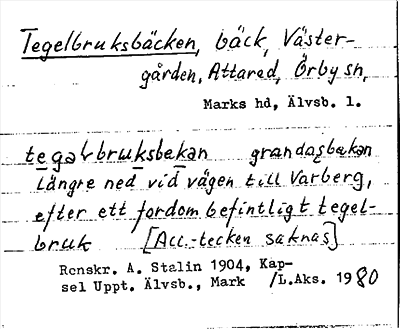 Tegelbruksbäcken, bäck, Väster-
gården, Attared, Örby sn,
Marks hd, Älvsb. l.
tegəlbruksbekan grandasbekan
längre ned vid vägen till Varberg,
efter ett fordom befintligt tegel-
bruk [Acc.-tecken saknas]
Renskr. A. Stalin 1904, Kap-
sel Uppt. Älvsb., Mark /L.Aks. 1980